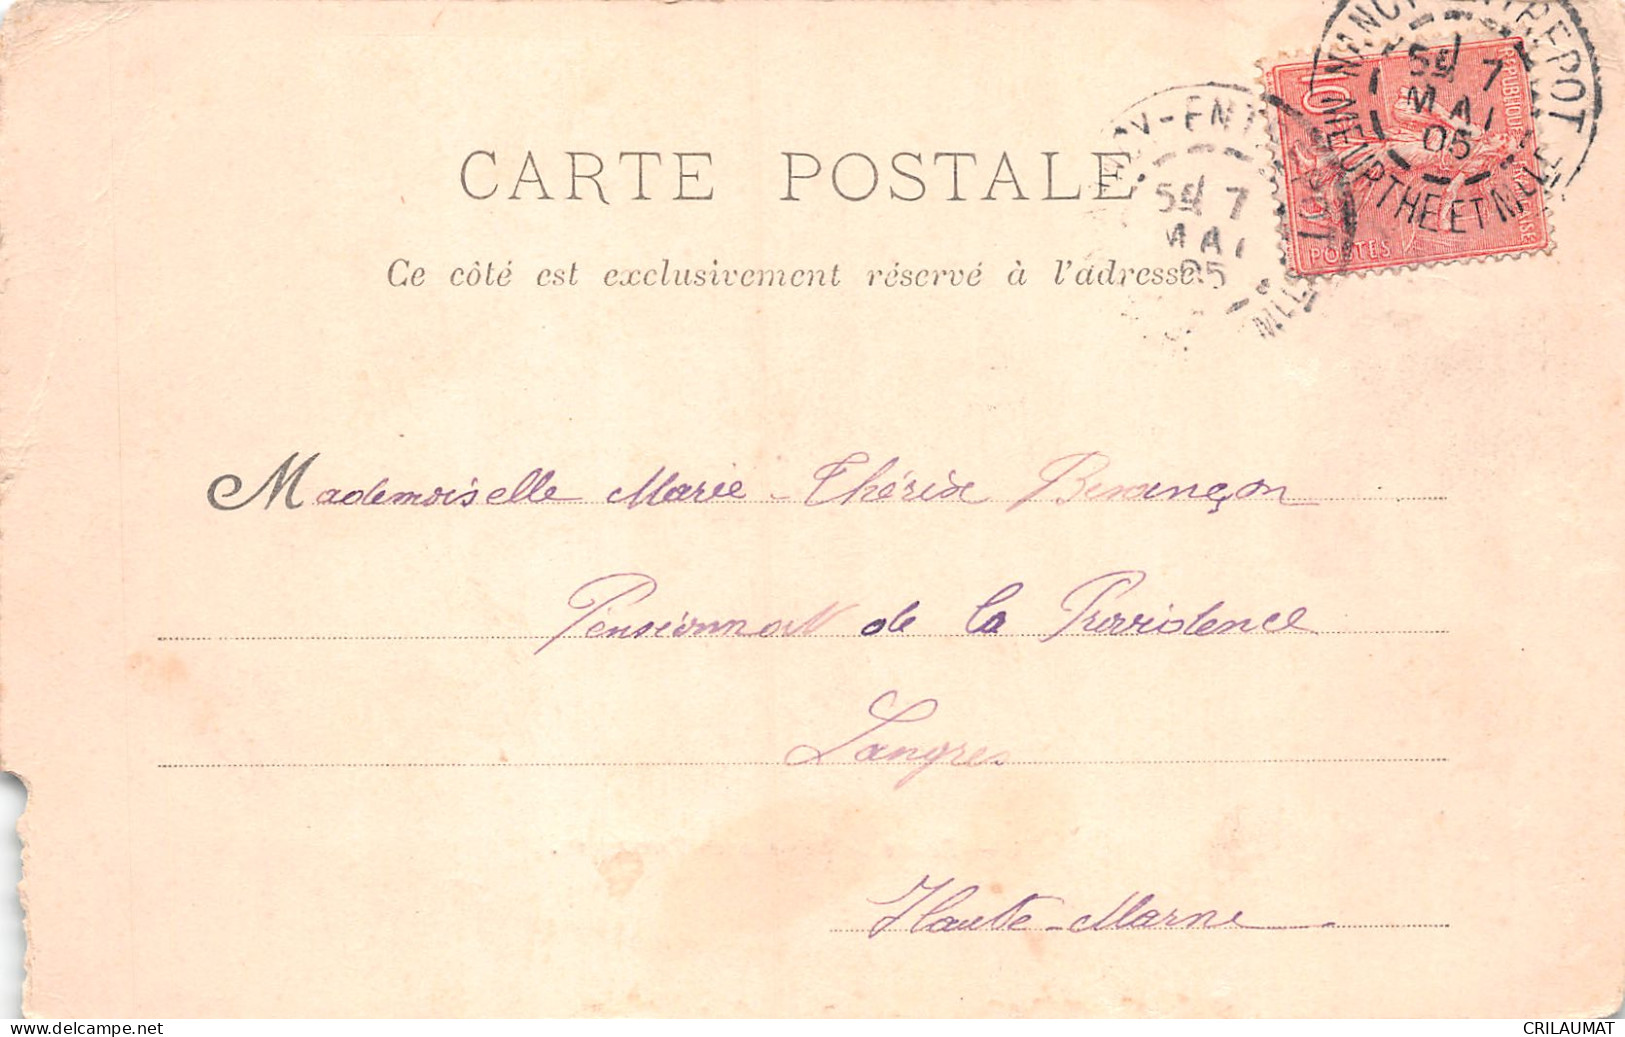 NANCY-ENTREPOT
5E 7
MAI
05
MEURTHE ET M
REPUBLIQUE FRANCAISE
10
POSTES
CARTE POSTALE
Ce côté est exclusivement réservé à l'adresse
Mademoiselle Marie-Thérèse Besançon
Pensionnat de la Providence
Langres
Haute-Marne
CRILAUMAT